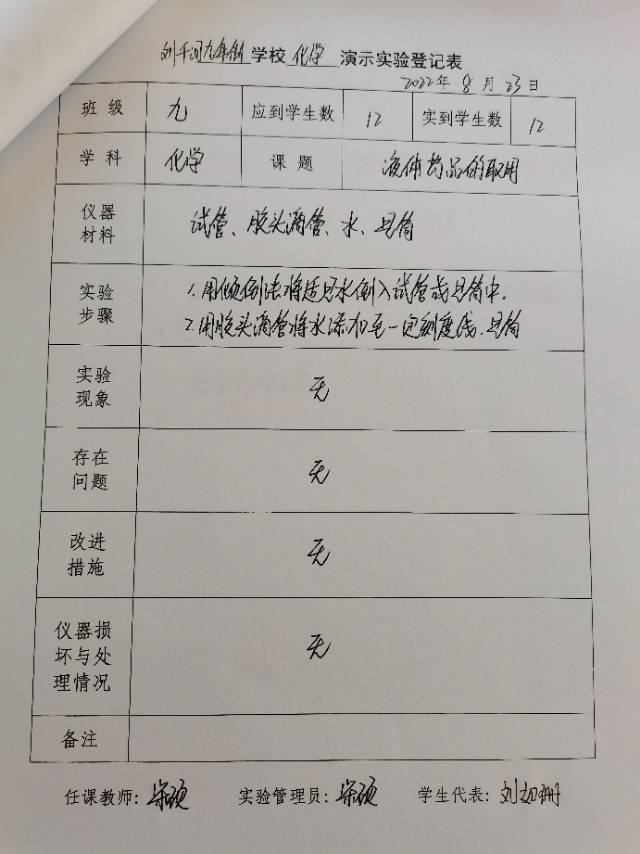 刘千河九年制学校 化学 演示实验登记表
2022年 8 月 23 日
班级 九 应到学生数 12 实到学生数 12
学科 化学 课题 液体药品的取用
仪器材料 试管、胶头滴管、水、量筒
实验步骤 1.用倾倒法将适量水倒入试管或量筒中.
2.用胶头滴管将水添加至一定刻度线.量筒
实验现象 无
存在问题 无
改进措施 无
仪器损坏与处理情况 无
备注
任课教师: 实验管理员: 学生代表: 刘